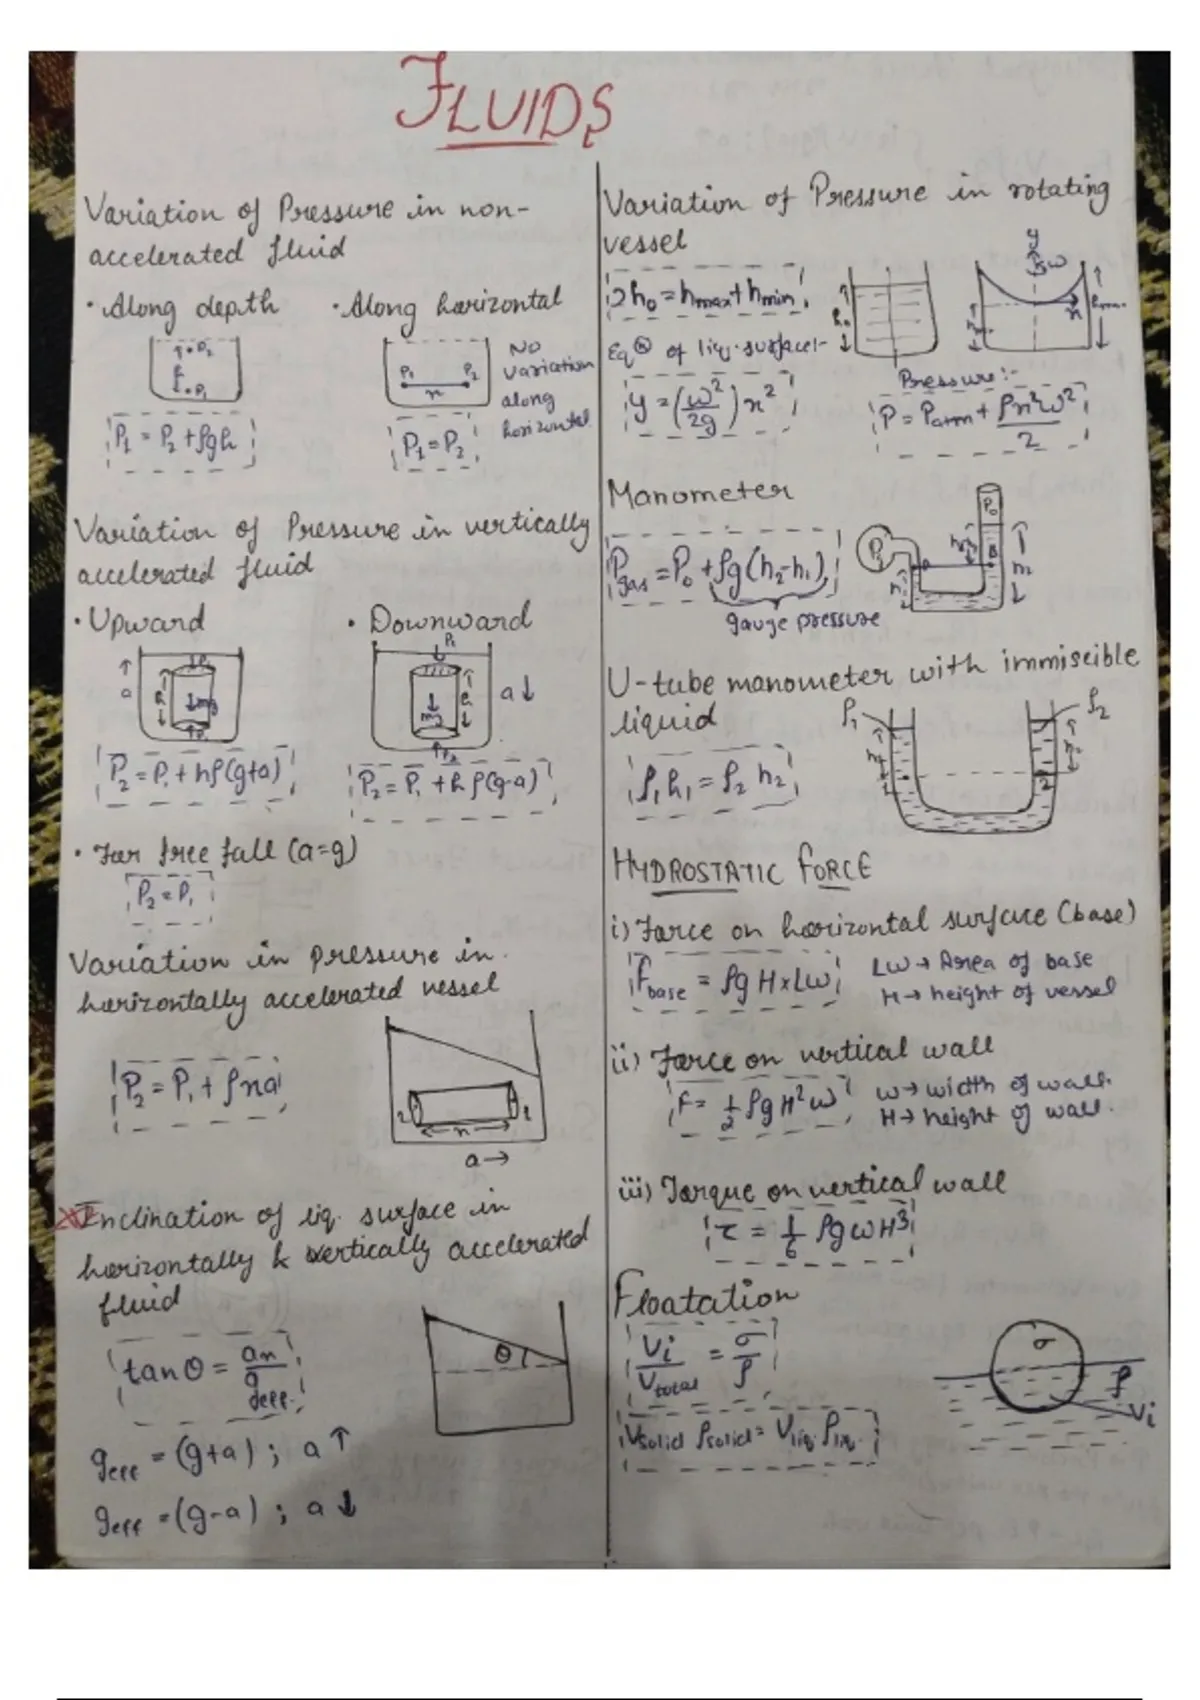 FLUIDS
Variation of Pressure in non-
accelerated fluid
• Along depth
• Along horizontal
P₂
h
P₁
P₁ P₂
x
No
variation
along
horizontal
P₁ = P₂ + ρgh
P₁ = P₂
Variation of Pressure in vertically
accelerated fluid
• Upward
• Downward
a
h
mg
P₁
mg
h
P₂
a↓
P₂ = P₁ + hρ(g+a)
P₂ = P₁ + hρ(g-a)
• For free fall (a=g)
P₂ = P₁
Variation in pressure in
horizontally accelerated vessel
P₂ = P₁ + ρxa
2 x 1
a→
Inclination of liq. surface in
horizontally & vertically accelerated
fluid
tanθ = aₓ/g_eff.
θ
g_eff = (g+a) ; a↑
g_eff = (g-a) ; a↓
Variation of Pressure in rotating
vessel
2h₀ = h_max + h_min
h₀
y
ω
x
Eqⁿ of liq. surface:-
y = (ω²/2g) x²
Pressure:-
P = P_atm + ρx²ω²/2
Manometer
P_gas = P₀ + ρg(h₂-h₁)
gauge pressure
P₀
A B
h₁
h₂
U-tube manometer with immiscible
liquid
ρ₁ ρ₂
h₁ h₂
1 2
ρ₁h₁ = ρ₂h₂
HYDROSTATIC FORCE
i) Force on horizontal surface (base)
F_base = ρgH×Lω
Lω → Area of base
H → height of vessel
ii) Force on vertical wall
F = 1/2 ρgH²ω
ω → width of wall.
H → height of wall.
iii) Torque on vertical wall
τ = 1/6 ρgωH³
Floatation
Vi/V_total = σ/ρ
σ
ρ
Vi
V_solid ρ_solid = V_liq. ρ_liq.